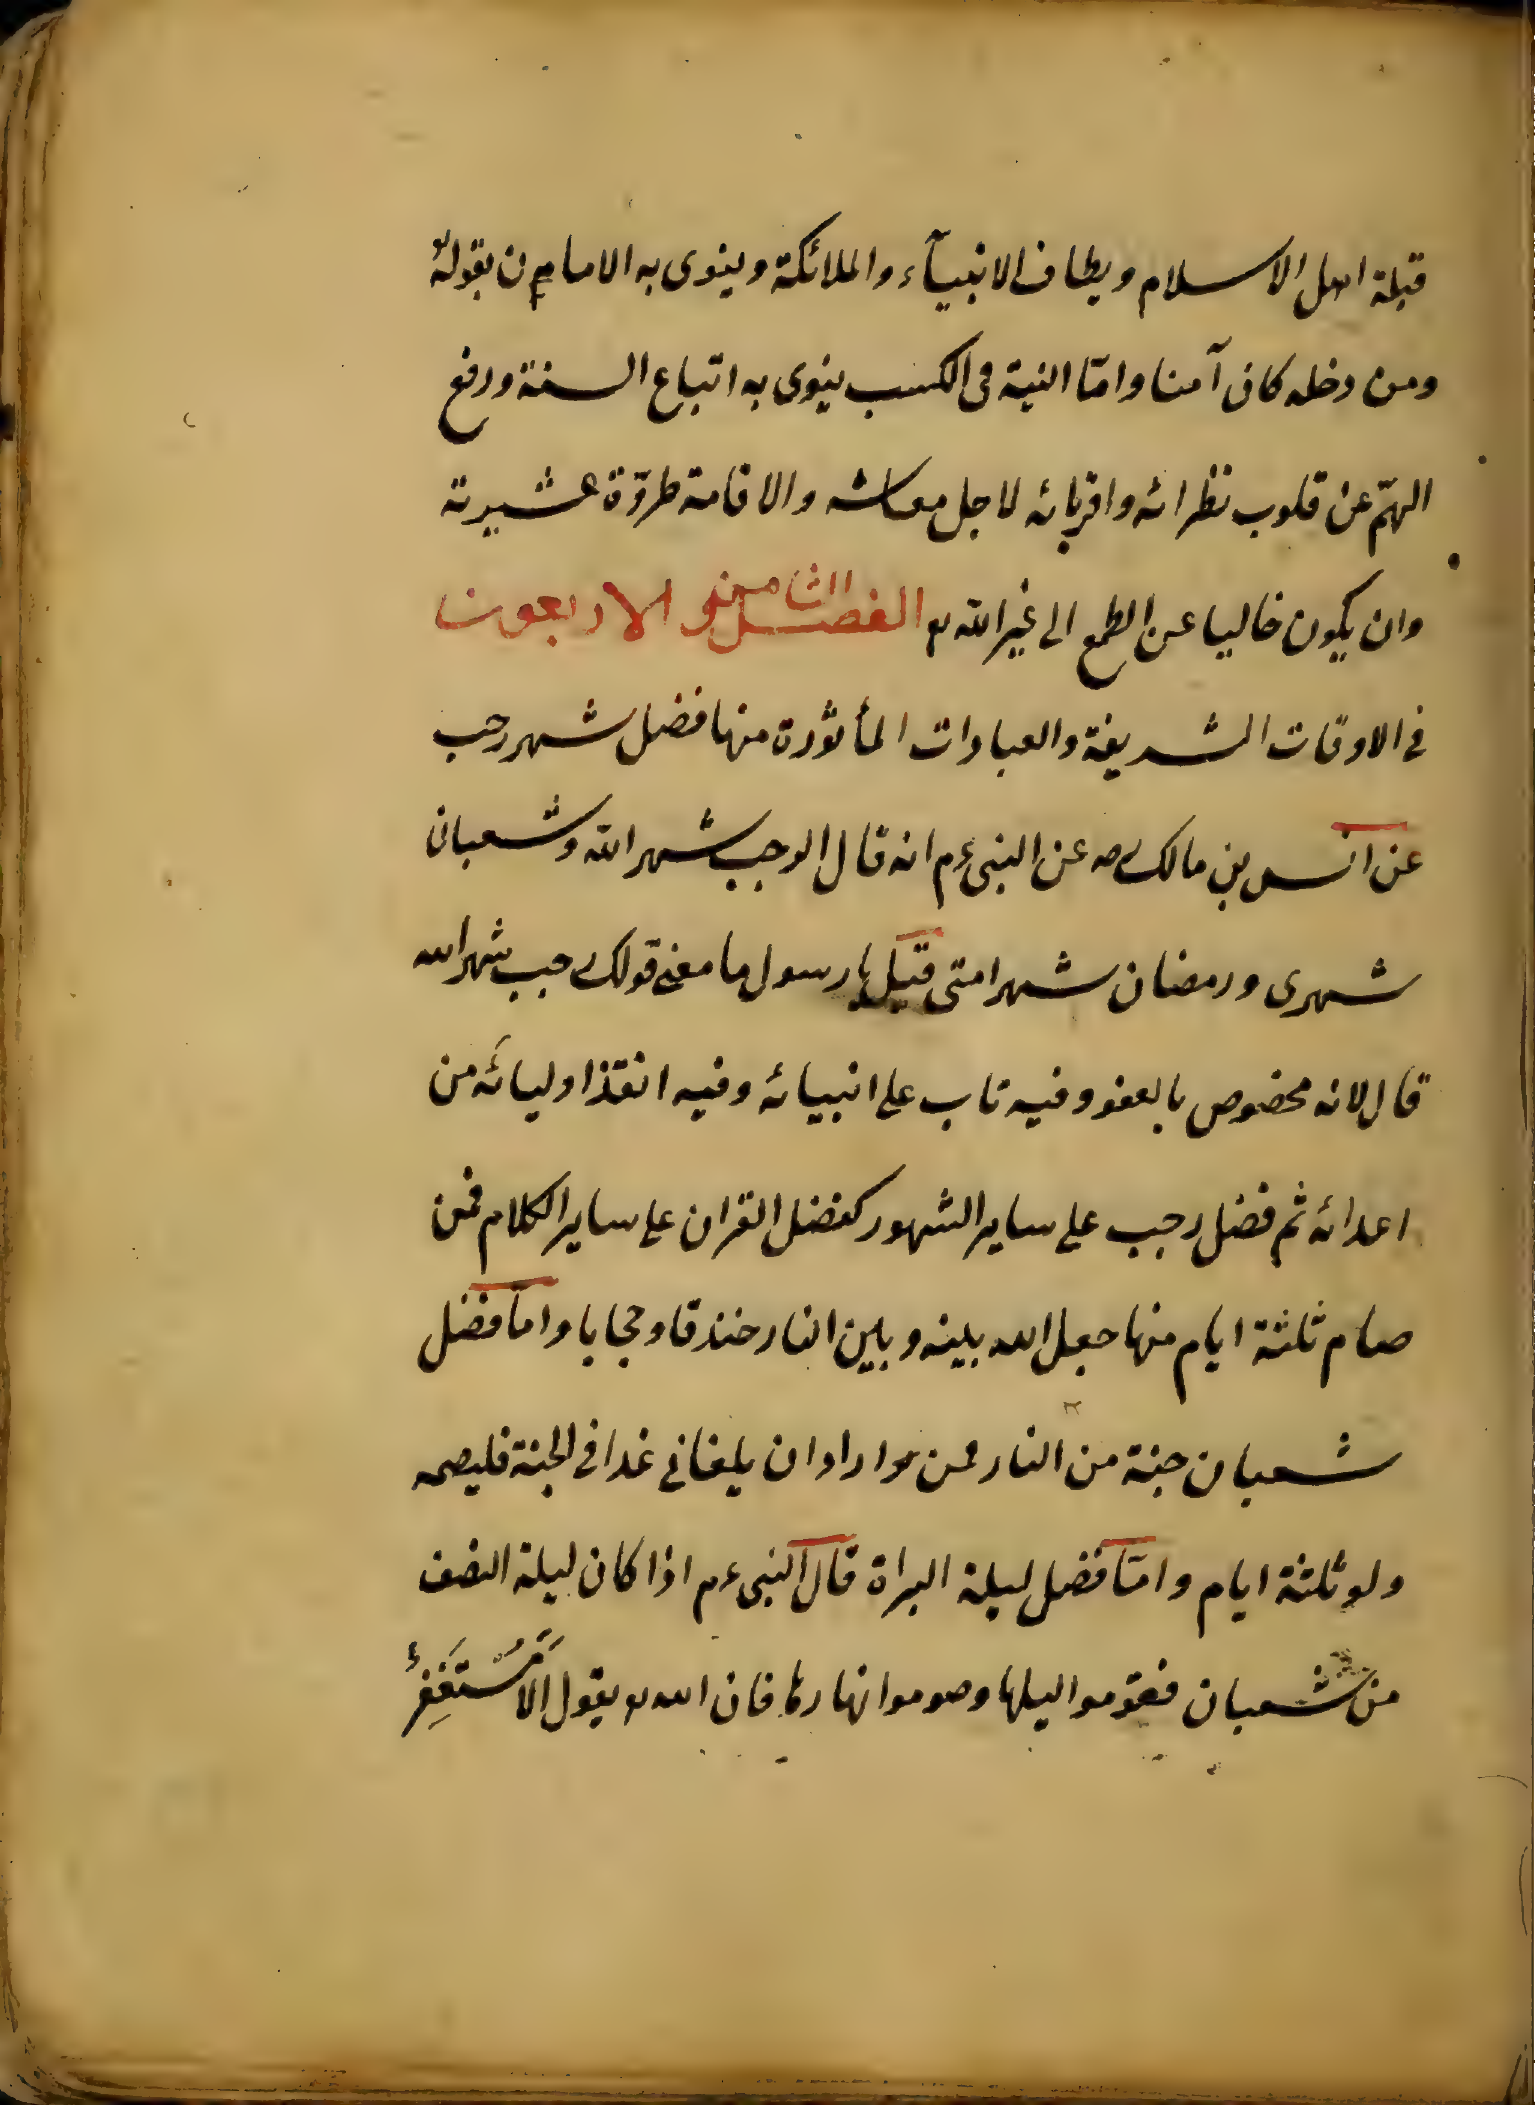 قبلة اهل الاسلام ويطاف الانبيآء والملائكة وينوى به الامام من بقوله تع
ومن دخله كان آمنا وامّا النية فى الكسب ينوى به اتباع السنة ورفع
الهمّ عن قلوب نظرائه واقربائه لاجل معاشه والاقامة طروّة عشيرته
وان يكون خاليا عن الطمع الى غير الله تع الفصل الثامن والاربعون
فى الاوقات الشريفة والعبادات المأثورة منها فضل شهر رجب
عن انس بن مالك رضه عن النبى عم انه قال الرجب شهر الله وشعبان
شهرى ورمضان شهر امتى قيل يا رسول ما معنى قولك رجب شهر الله
قال لانه مخصوص بالعفو وفيه تاب على انبيائه وفيه انقذ اوليائه من
اعدائه ثم فضل رجب على ساير الشهور كفضل القران على ساير الكلام فمن
صام ثلثة ايام منها جعل الله بينه وبين النار خندقا وحجابا وامّا فضل
شعبان جنة من النار فمن اراد ان يلقانى غدا فى الجنة فليصمه
ولو ثلثة ايام وامّا فضل ليلة البراة قال النبى عم اذا كان ليلة النصف
من شعبان فقوموا ليلها وصوموا نهارها فان الله تع يقول اَلَا مُسْتَغْفِرٌ